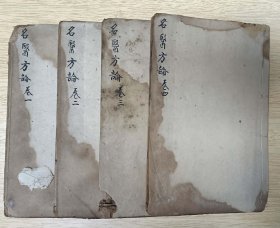 名醫方論卷一
名醫方論卷二
名醫方論卷三
名醫方論卷四